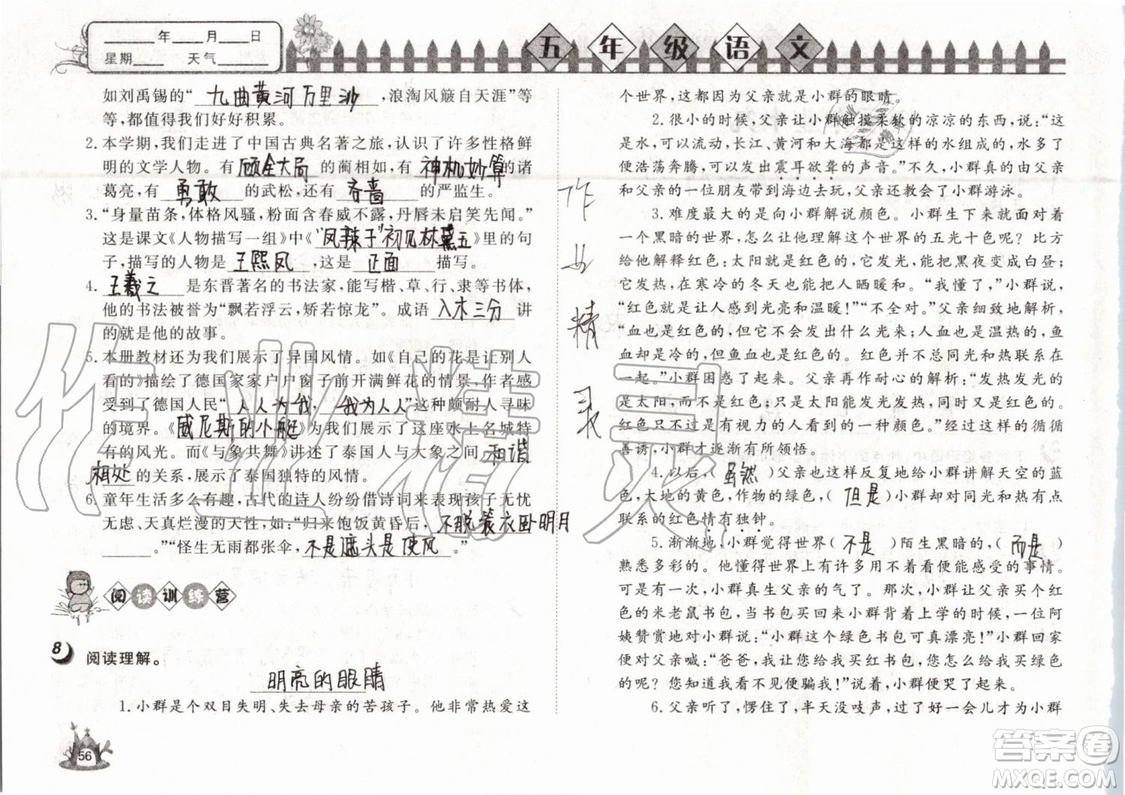 ____年____月____日
星期____ 天气____
五年级语文
如刘禹锡的“九曲黄河万里沙，浪淘风簸自天涯”等
等，都值得我们好好积累。
2.本学期，我们走进了中国古典名著之旅，认识了许多性格鲜
明的文学人物。有顾全大局的蔺相如，有神机妙算的诸
葛亮，有勇敢的武松，还有吝啬的严监生。
3.“身量苗条，体格风骚，粉面含春威不露，丹唇未启笑先闻。”
这是课文《人物描写一组》中《“凤辣子”初见林黛玉》里的句
子，描写的人物是王熙凤，这是正面描写。
4.王羲之是东晋著名的书法家，能写楷、草、行、隶等书体，
他的书法被誉为“飘若浮云，矫若惊龙”。成语入木三分讲
的就是他的故事。
5.本册教材还为我们展示了异国风情。如《自己的花是让别人
看的》描绘了德国家家户户窗子前开满鲜花的情景，作者感
受到了德国人民“人人为我，我为人人”这种颇耐人寻味
的境界。《威尼斯的小艇》展示了这座水上名城特
有的风光。而《与象共舞》讲述了泰国人与大象之间和谐
相处的关系，展示了泰国独特的风情。
6.童年生活多么有趣，古代的诗人纷纷借诗词来表现孩子无忧
无虑、天真烂漫的天性，如“归来饱饭黄昏后，不脱蓑衣卧明月
____。”“怪生无雨都张伞，不是遮头是使风。”
阅读训练营
8 阅读理解。
明亮的眼睛
1.小群是个双目失明、失去母亲的苦孩子。他非常热爱这
56
个世界，这都是因为父亲是小群的眼睛。
2.很小的时候，父亲让小群触摸柔软的凉凉的东西，说：“这
就是水，水可以流动，长江、黄河和大海都是这样的水，水多了
便浩浩荡荡奔腾，可以发出震耳欲聋的声音。”不久，小群由父亲
和父亲的一位朋友带到海边去，父亲还教会了小群游泳。
3.难度最大的是向小群解说颜色。小群生下来就面对着
一个黑暗的世界，怎么让他理解世界的五光十色呢？比方
给他解释红色：太阳就是红色的，它可以使黑夜变成白昼；
它有热量，在寒冷的冬天也能把人照暖和。小群若有所思：
“红色就是光亮和温暖！”“不全对。”父亲细致地解析，
“血也是红色的，但它不会发出什么光来；人血是温热的，鱼
血却是冷的，但也都是红色的。红色只是和光和热联系在
一起。”小群困惑了起来。父亲再作耐心的解析：“发热发光的
是太阳，而太阳是红色的，不是红色能发光发热，同时只是红
色和太阳联系起来，有视力的人看到的一种颜色。”父亲的循循
善诱，使小群才逐渐有所领悟。
4.以后，（虽然）父亲也这样反复地给小群讲解天空的蓝
色，大地的黄色，作物的绿色，（但是）小群却对同光和热有
联系的红色情有独钟。
5.渐渐地，小群觉得世界（不是）陌生黑暗的，（而是）
熟悉多彩的。一个人来到世界有许多用不着看便能感受的事情。
可是有一次，小群真生父亲的气了。父亲给小群买了个红色
的米老鼠书包，小群背着书包高兴地去上学的时候，邻居阿
姨赞赏地对小群说：“小群这个绿色书包可真漂亮！”小群回家
便对父亲喊：“爸爸，我叫您买红书包，您怎么买了绿书包，您
欺负我看不见颜色，您骗我！”说着，小群竟哭了起来。
6.父亲听了，愣住了，半天没吱声，过了好一会儿才为小群
作业精灵
作业精灵
答案圈
MXQE.COM